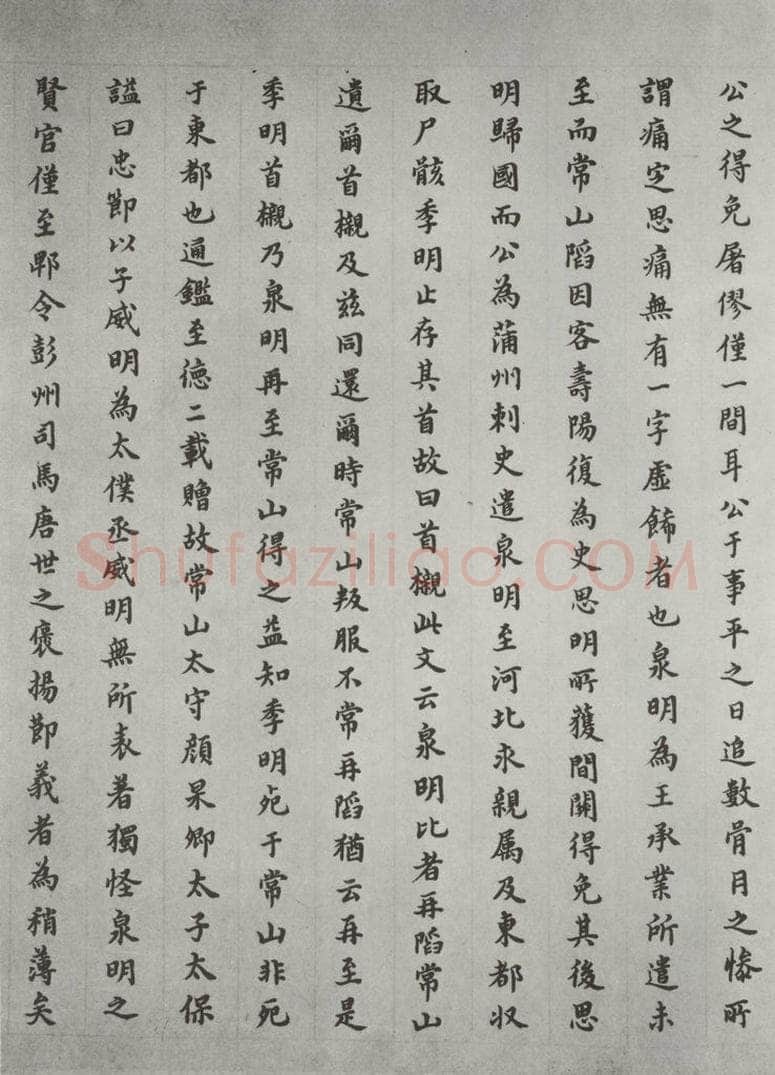 公之得免屠僇僅一間耳公于事平之日追數骨月之慘所
謂痛定思痛無有一字虛餙者也泉明為王承業所遣未
至而常山䧟因客壽陽復為史思明所獲間關得免其後思
明歸國而公為蒲州刺史遣泉明至河北求親属及東都収
取尸骸季明止存其首故曰首櫬此文云泉明比者再䧟常山
遺爾首櫬及玆同還爾時常山叛服不常再䧟猶云再至是
季明首櫬乃泉明再至常山得之益知季明死于常山非死
于東都也通鑑至德二載贈故常山太守顔杲卿太子太保
謚曰忠節以子威明為太僕丞威明無所表著獨怪泉明之
賢官僅至郫令彭州司馬唐世之襃揚節義者為稍薄矣
Shufaziliao.COM